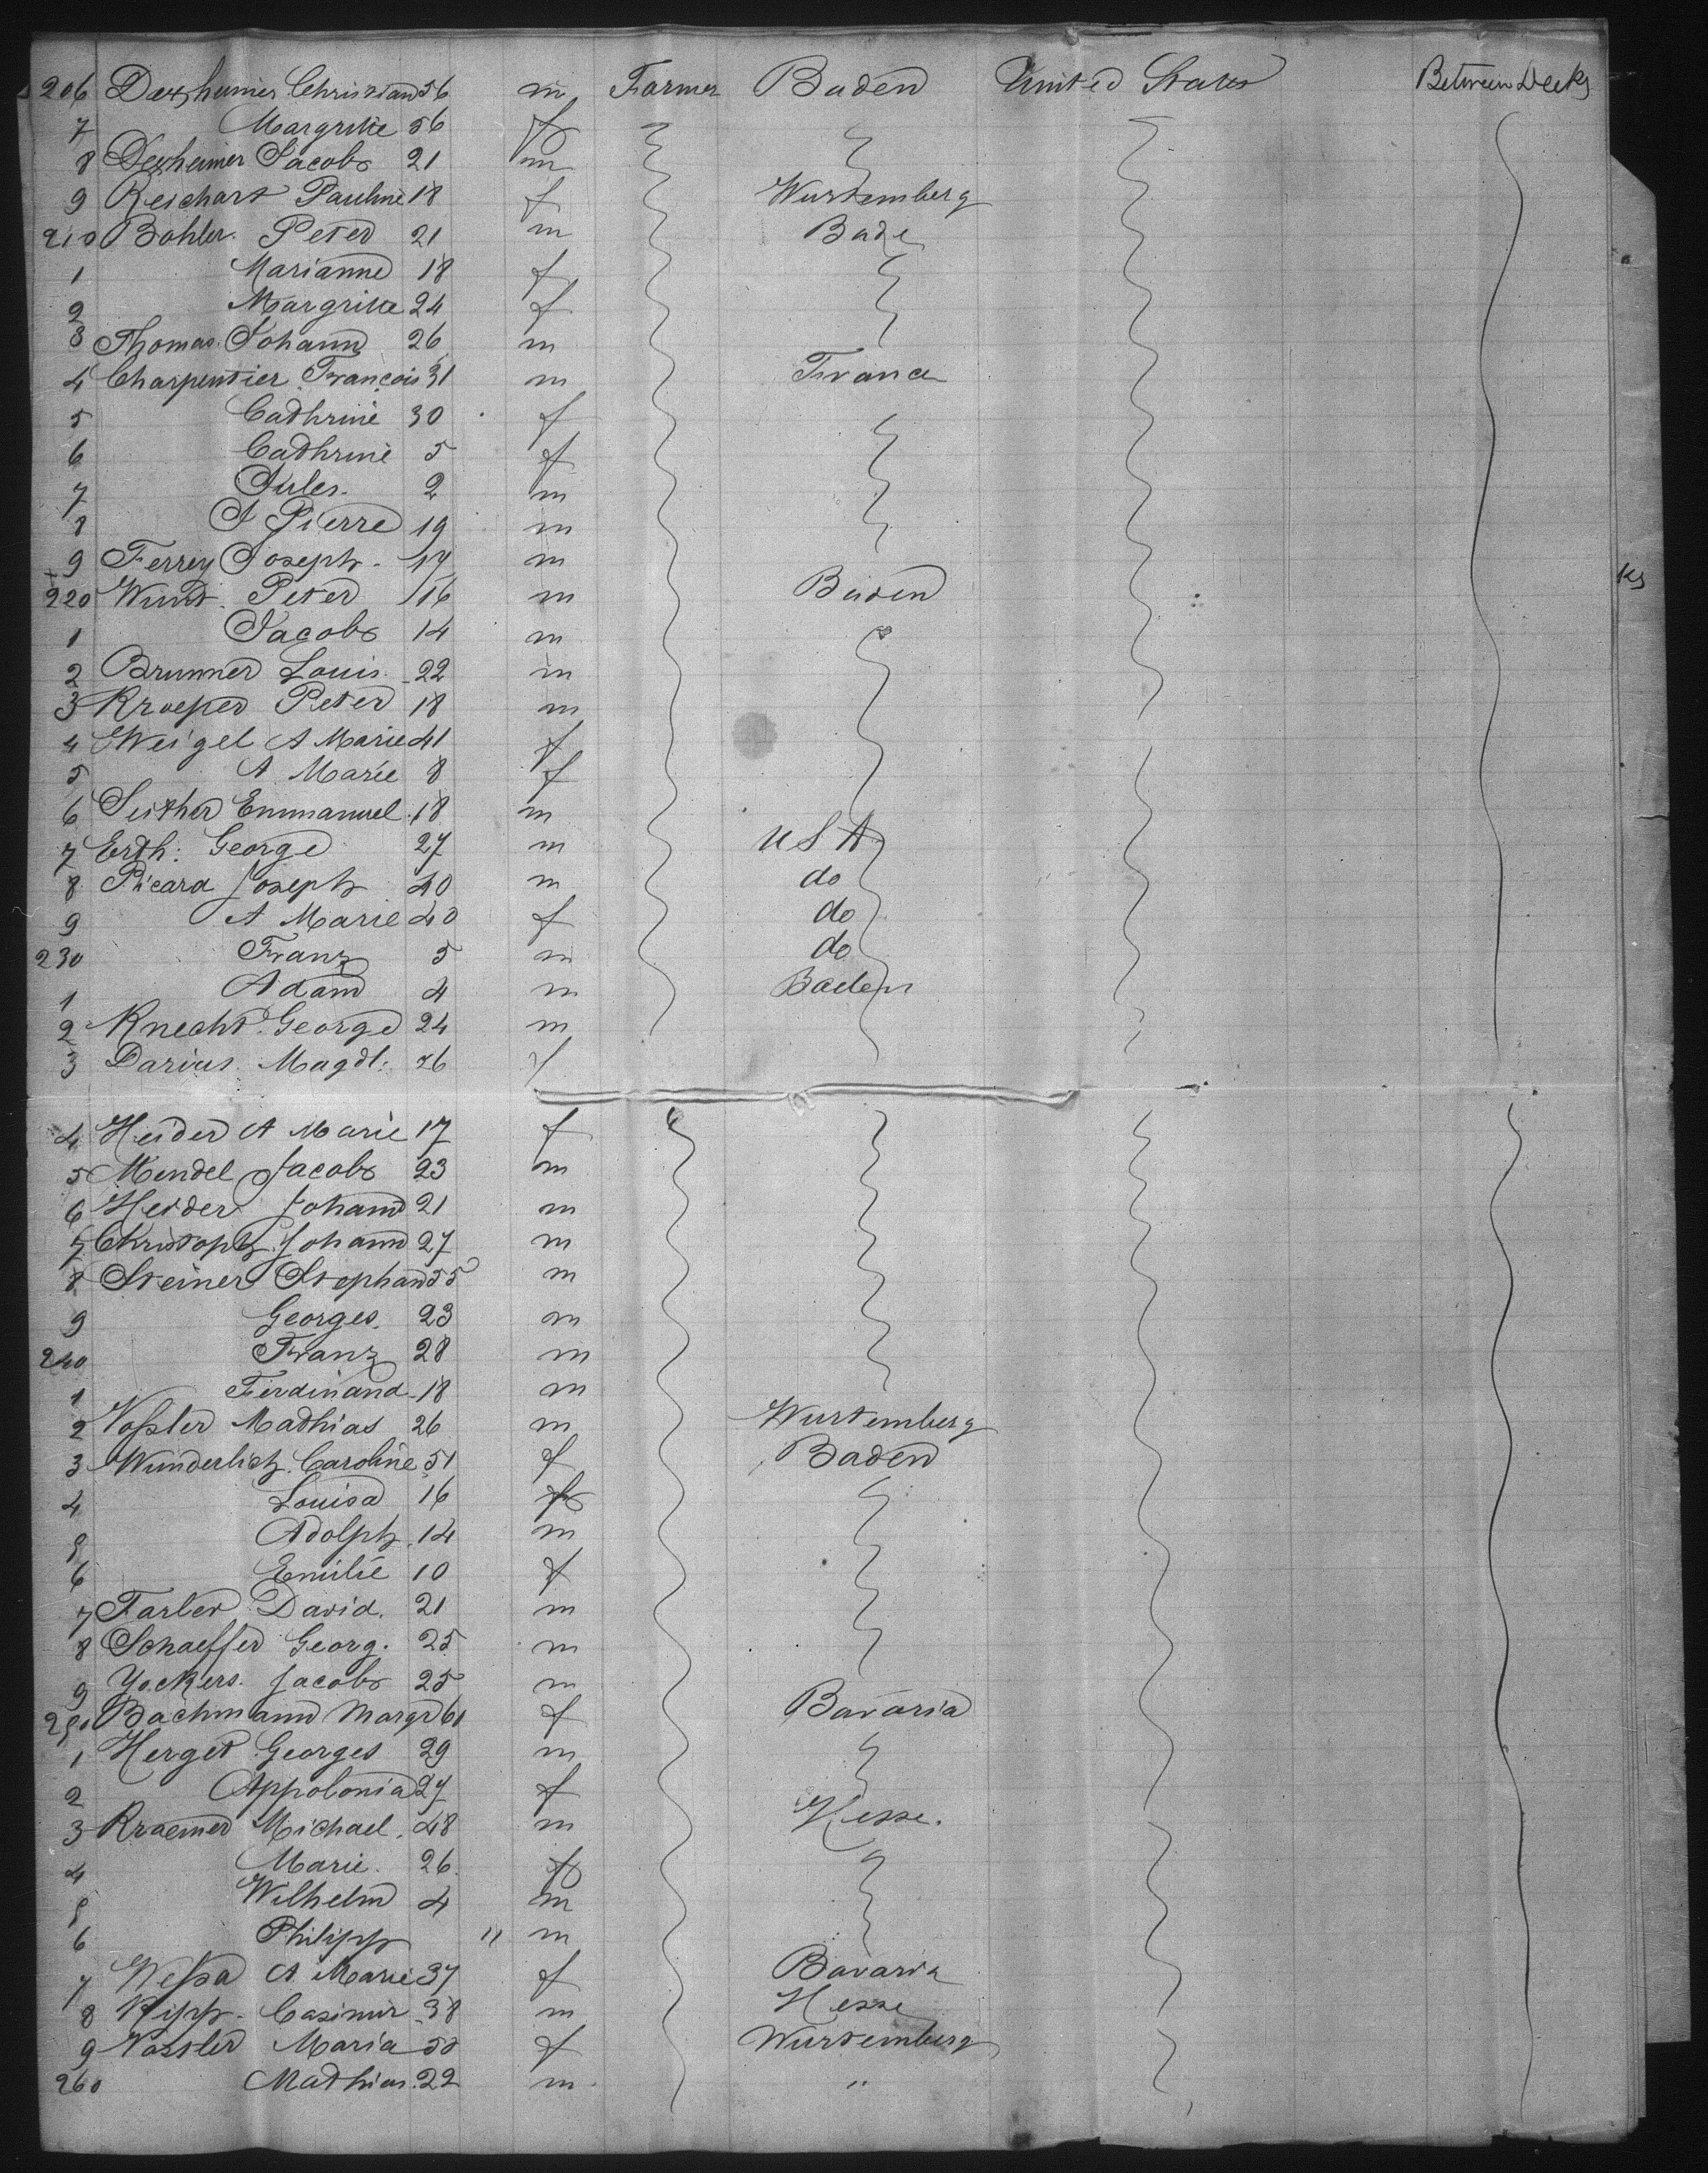 206 Dexheimer Christian 56 m Farmer Baden United States Between Decks
7 Margritte 56 f
8 Dexheimer Jacob 21 m
9 Reichart Pauline 18 f Wurtemberg
210 Bohler Peter 21 m Bade
1 Marianne 18 f
2 Margritte 24 f
3 Thomas Johann 26 m
4 Charpentier François 31 m France
5 Cathrine 30 f
6 Cathrine 5 f
7 Jules 2 m
8 J Pierre 19 m
9 Ferrey Joseph 19 m
220 Wundt Peter 16 m Baden
1 Jacob 14 m
2 Brunner Louis 22 m
3 Kroeper Peter 18 m
4 Weigel A Marie 41 f
5 A Marie 8 f
6 Suther Emmanuel 18 m
7 Erth: George 27 m U S A
8 Picard Joseph 40 m do
9 A Marie 40 f do
230 Franz 5 m do
1 Adam 4 m Baden
2 Knecht George 24 m
3 Darius Magdl: 26 f
4 Heider A Marie 17 f
5 Mendel Jacob 23 m
6 Heider Johann 21 m
7 Christoph Johann 27 m
8 Steiner Stephan 55 m
9 Georges 23 m
240 Franz 28 m
1 Ferdinand 18 m
2 Voßler Mathias 26 m Wurtemberg
3 Wunderlich Caroline 51 f Baden
4 Louisa 16 f
5 Adolph 14 m
6 Emilie 10 f
7 Farber David 21 m
8 Schaeffer Georg. 25 m
9 Yockers Jacob 25 m
250 Bachmann Margr 61 f Bavaria
1 Herget Georges 29 m
2 Appolonia 27 f
3 Kraemer Michael 48 m Hesse.
4 Marie 26 f
5 Wilhelm 4 m
6 Philipp " m
7 Weßa A Marie 37 f Bavaria
8 Casimir 38 m Hesse
9 Vossler Maria 50 f Wurtemberg
260 Mathias 22 m "
ks